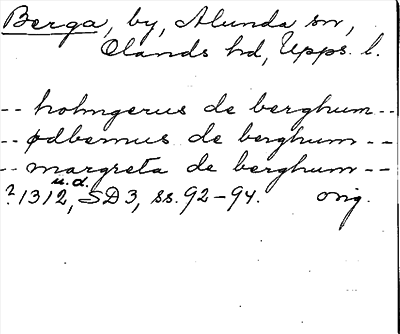 Berga, by, Alunda sn,
Olands hd, Upps. l.
-- holmgerus de berghum --
-- ødbernus de berghum --
-- margreta de berghum --
u.d.
? 1312, SD 3, ss. 92-94. orig.